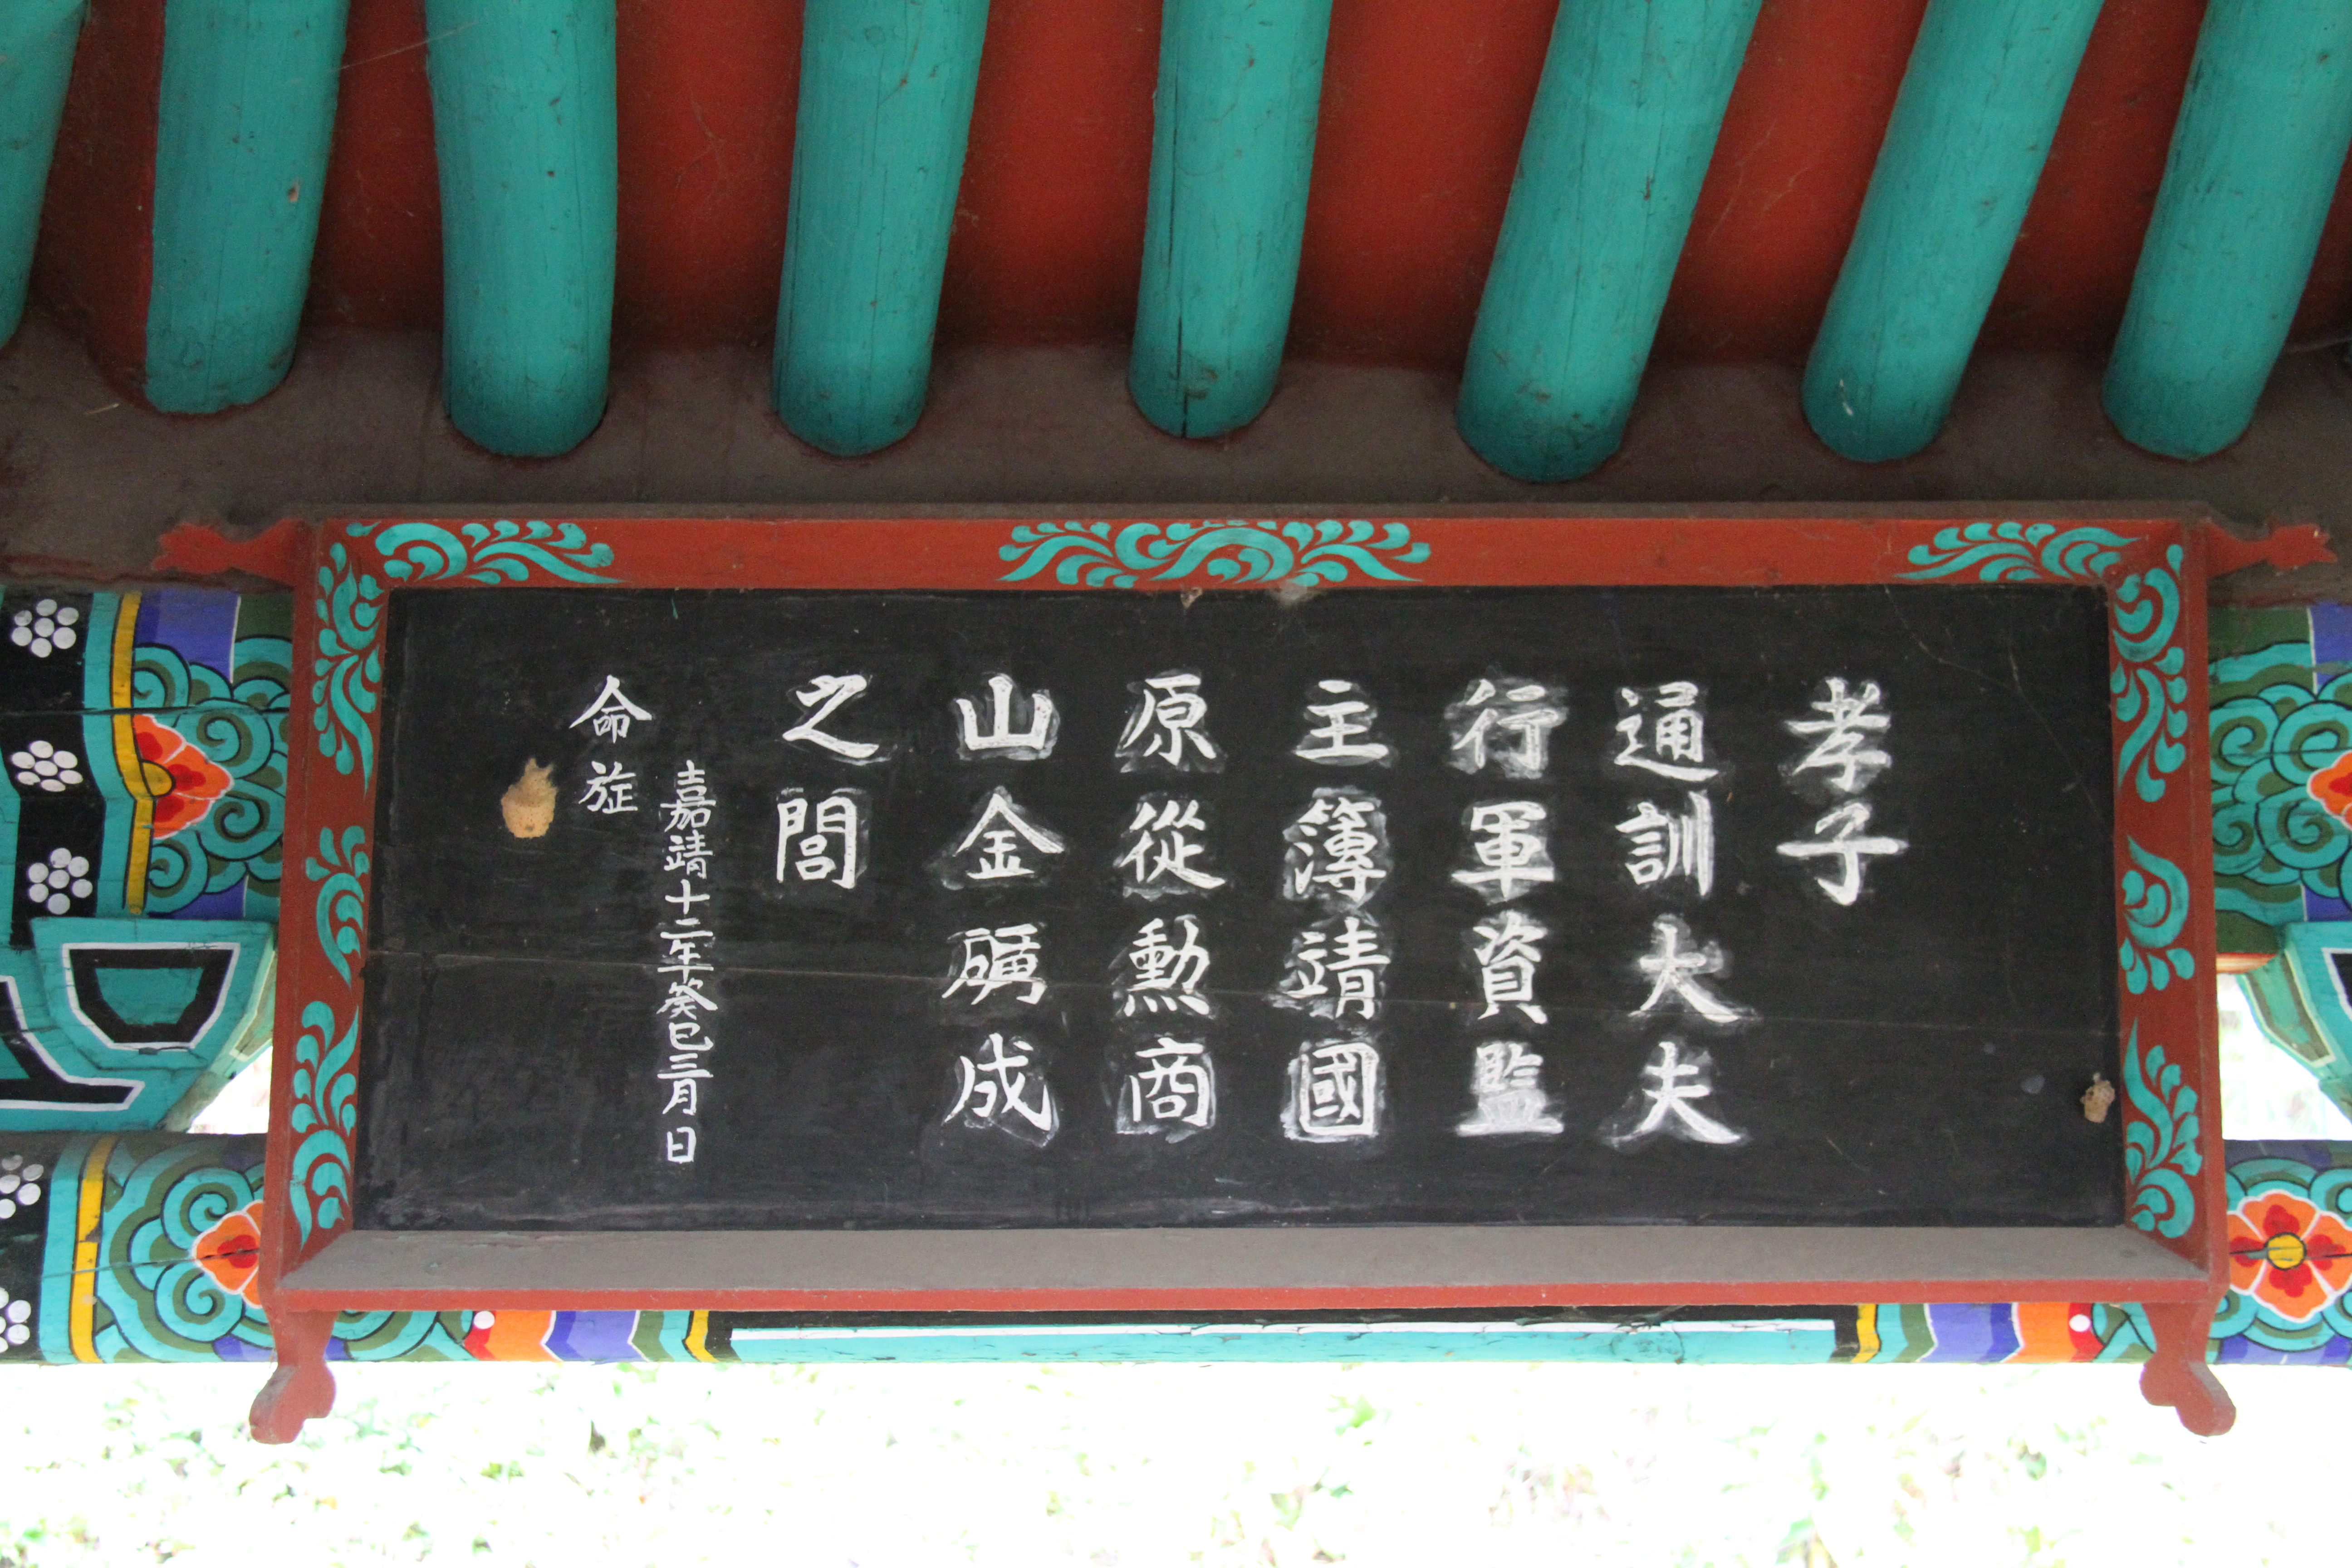 孝子
通訓大夫
行軍資監
主簿靖國
原從勲商
山金礪成
之閭
嘉靖十二年癸巳三月日
命旌